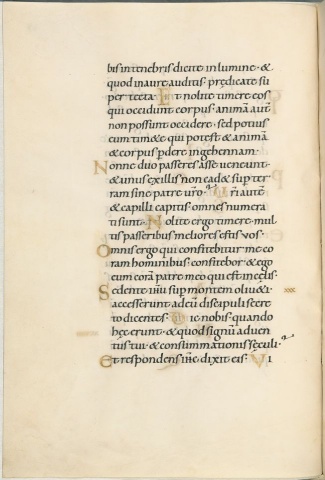 bis in tenebris dicite in lumine · &
quod in aure auditis · prędicate su
per tecta · Et nolite timere eos
qui occidunt corpus · animā aut
non possunt occidere · sed potius
eum tim&e qui potest & animā
& corpus pdere in gehennam ·
Nonne duo passeres asse veneunt ·
& unus ex illis non cad& sup ter
ram sine patre vro · Vri autē
& capilli capitis omnes numera
ti sunt · Nolite ergo timere · mul
tis passeribus meliores estis vos ·
Omnis ergo qui confitebitur me co
ram hominibus · confitebor & ego
eum corā patre meo qui est in cęlis ·
Sedente sup montem oliu&i ·
accesserunt ad eū discipuli secre
to dicentes · Dic nobis quando
hęc erunt · & quod signū aduen
tus tui · & consummationis sęculi ·
Et respondens dixit eis · Vi